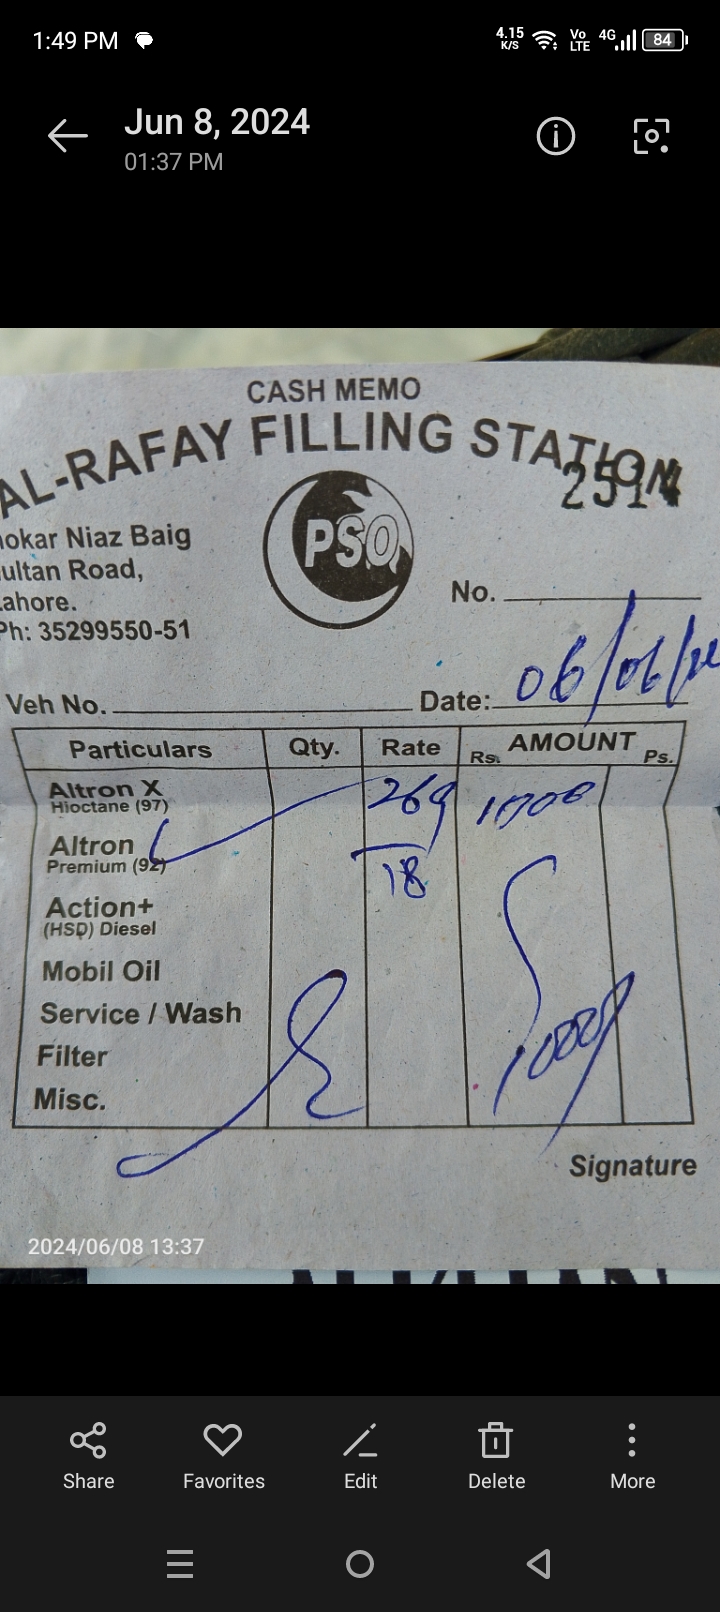 1:49 PM
4.15 K/S Vo LTE 4G 84
Jun 8, 2024
01:37 PM
CASH MEMO
AL-RAFAY FILLING STATION
2514
PSO
hokar Niaz Baig
ultan Road,
Lahore.
Ph: 35299550-51
No.
Veh No. Date: 06/06/24
Particulars Qty. Rate Rs. AMOUNT Ps.
Altron X
Hioctane (97)
269 1000
Altron
Premium (92)
18
Action+
(HSD) Diesel
Mobil Oil
Service / Wash
Filter
1000
Misc.
Signature
2024/06/08 13:37
Share Favorites Edit Delete More